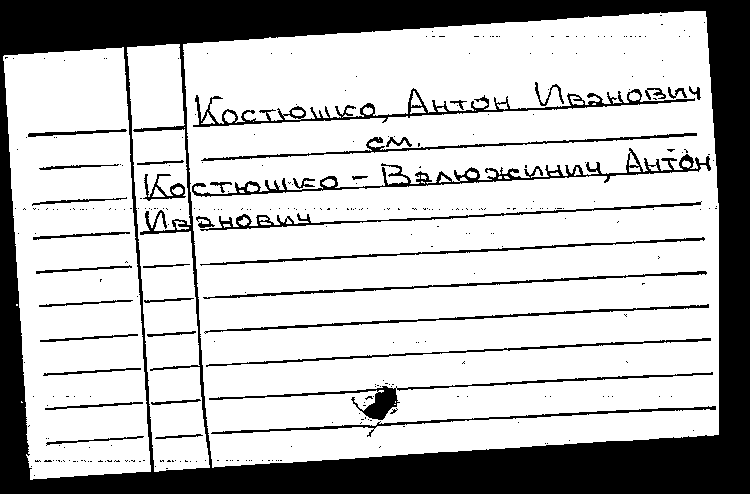 Костюшко, Антон Иванович
см.
Костюшко - Валюжинич, Антон
Иванович